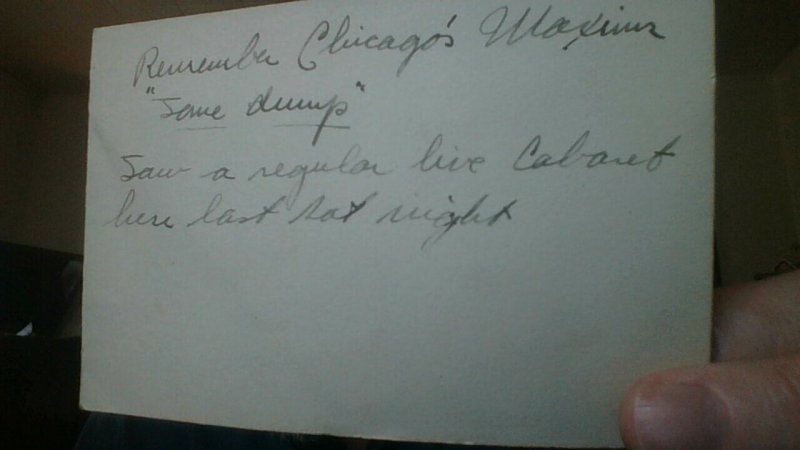 Remember Chicago's Maxims
"Some dump"
Saw a regular live Cabaret
here last Sat night